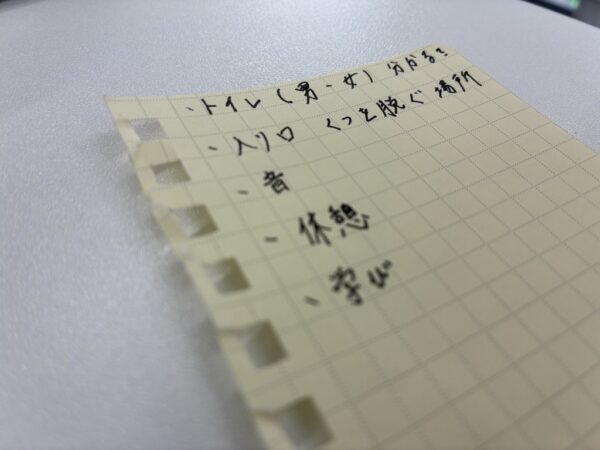 ・トイレ（男・女）分かる？
・入り口 くつを脱ぐ場所
・音
・休憩
・学び